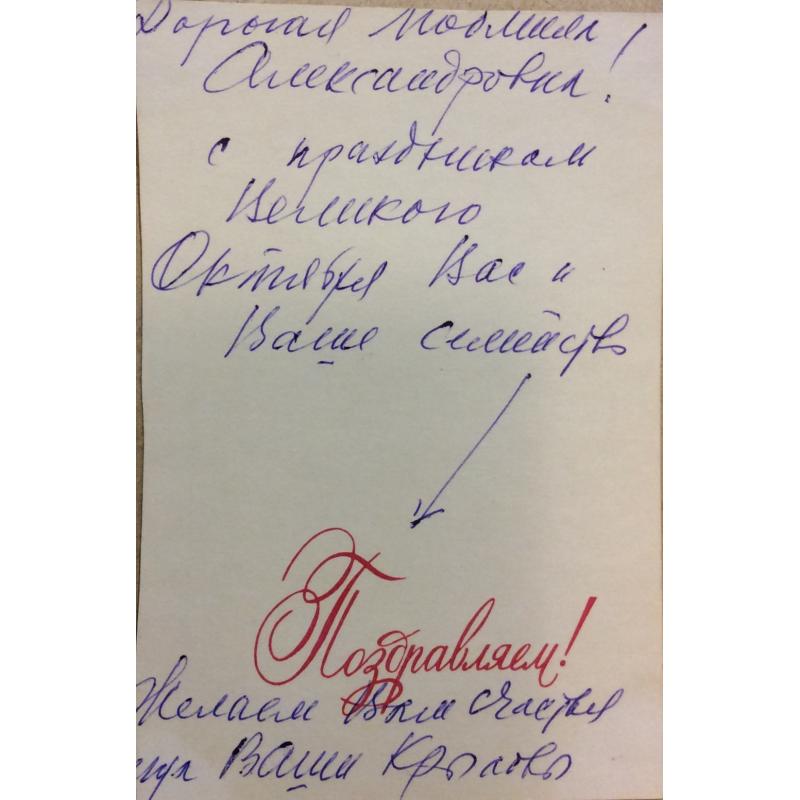 Дорогая Людмила
Александровна!
с праздником
Великого
Октября Вас и
Ваше семейство
Поздравляем!
Желаем Вам счастья
Ваши Крыловы